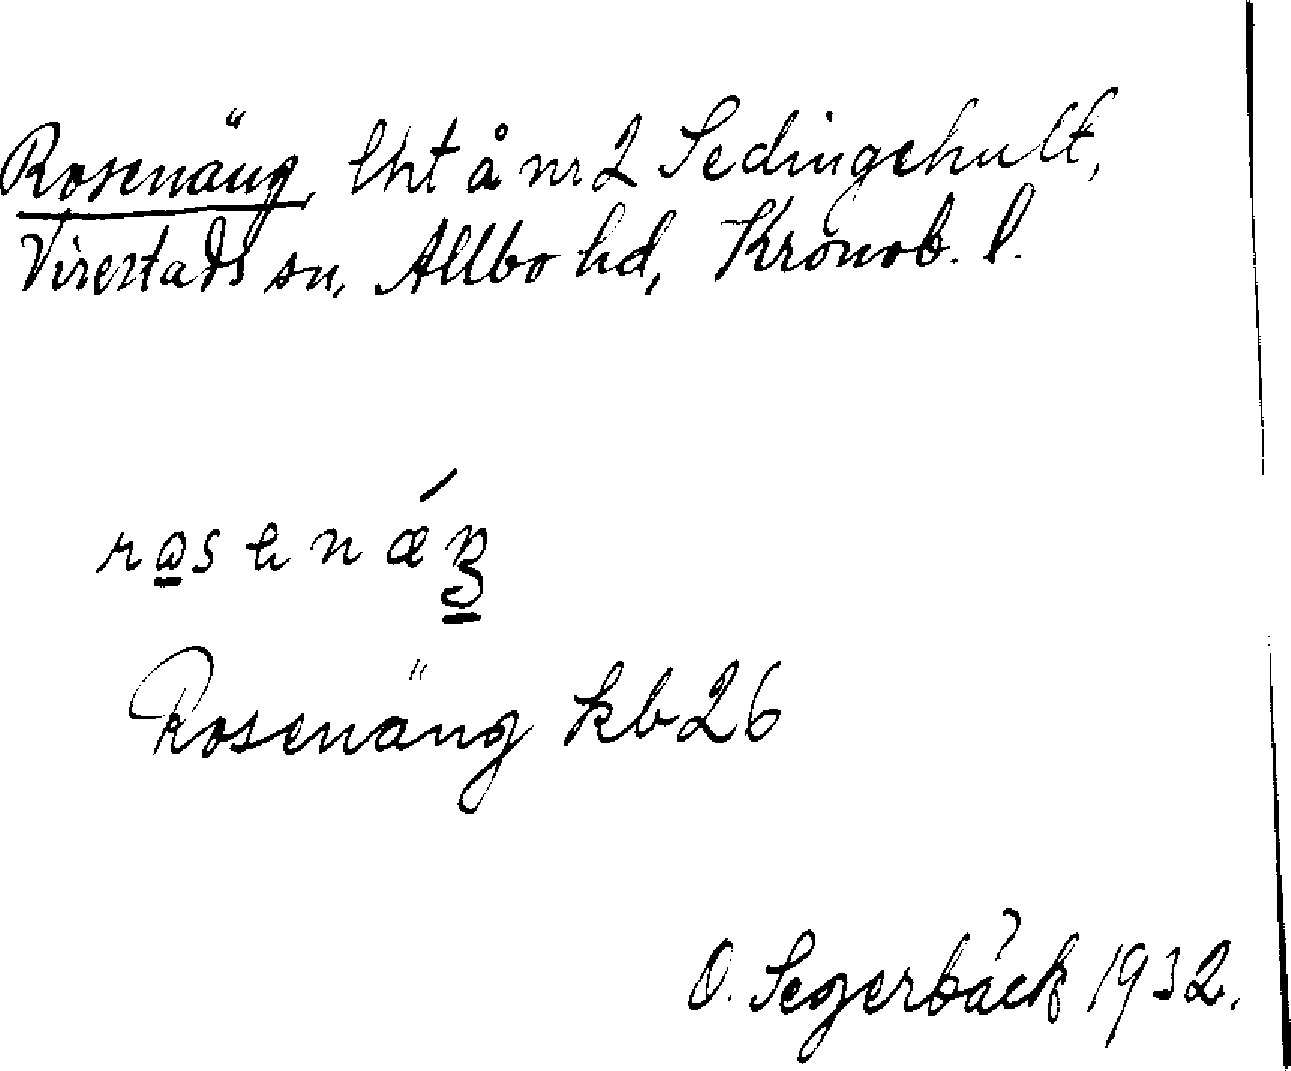 Rosenäng, lht å nr 2 Sedingehult,
Virestads sn, Allbo hd, Kronob. l.
rosenǽŋ
Rosenäng kb 26
O. Segerbäck 1932.